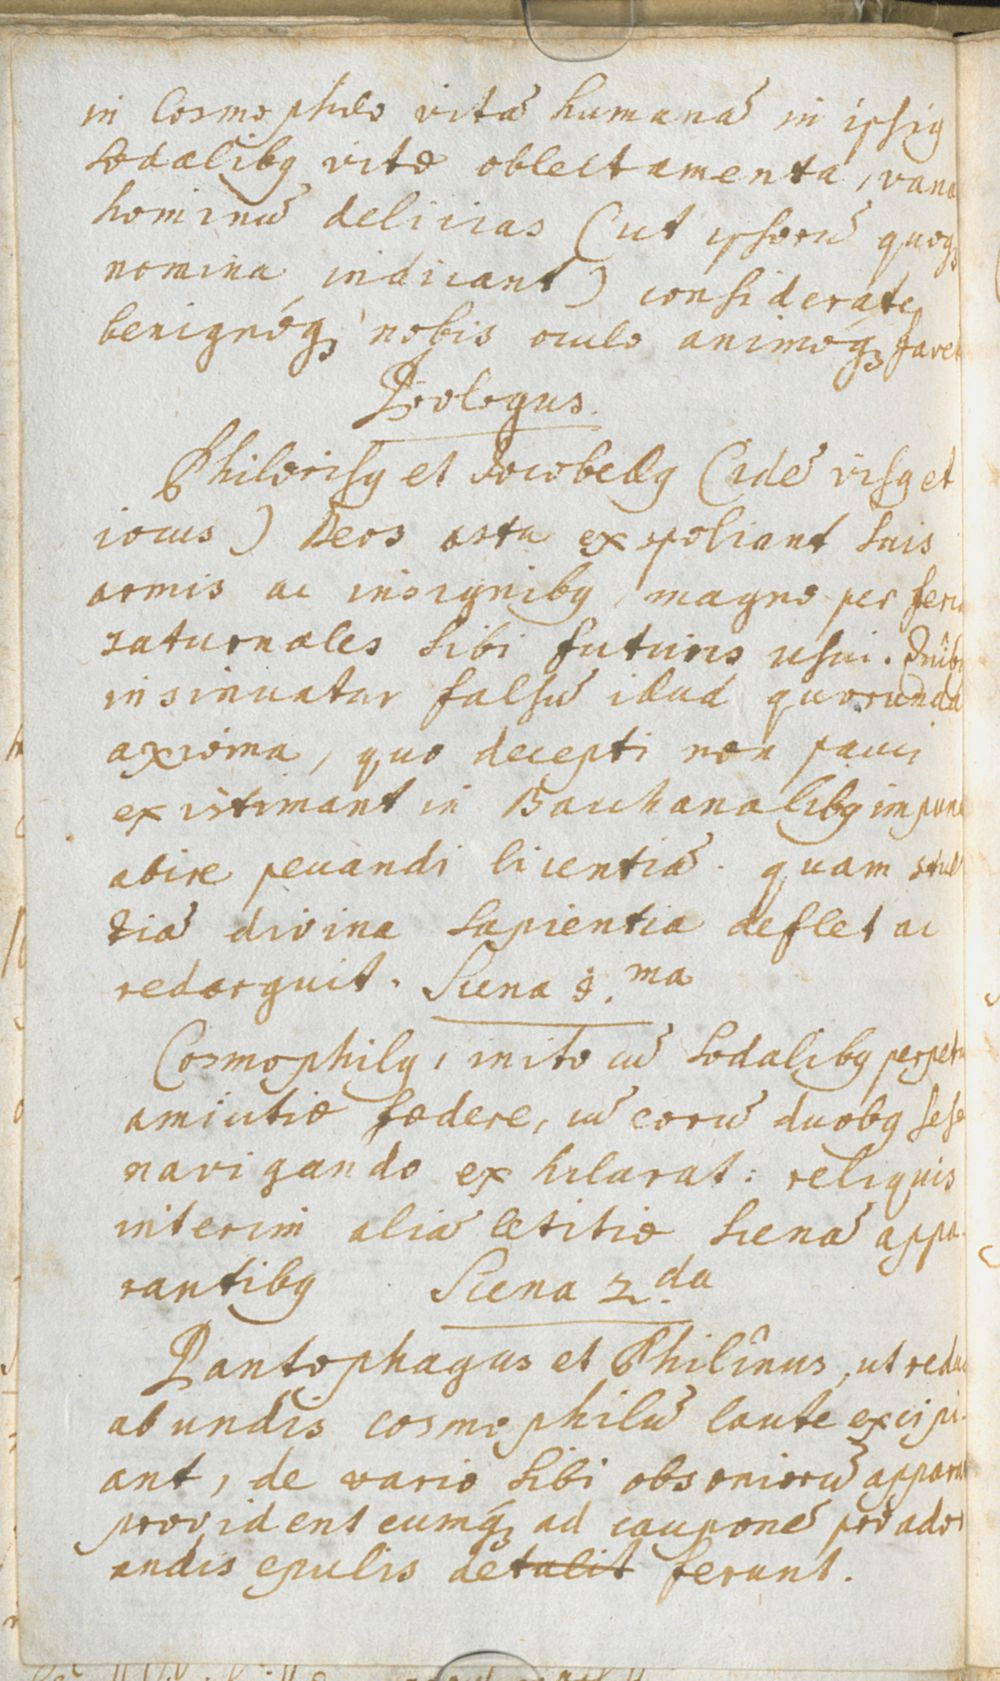 in Cosmophilo vitā humanā in ipsiq
sodalibq vitæ oblectamenta, vana
hominū delicias (ut ipsorū quoqꝫ
nomina indicant) considerate,
benignéqꝫ nobis oculo animóqꝫ favet
Prologus.
Philorisq et Jocobellq (idē risq et
iocus) Deos astu expoliant suis
armis ac insignibq, magno per feri
saturnales sibi futuris usui.
insinuatur falsū illud quorundā
axioma, quo decepti non pauci
existimant in Bacchanalibq impune
abire peccandi licentiā. quam stul
tiā divina sapientia deflet ac
redarguit. Scena 1.ma
Cosmophilq, inito cū sodalibq perpetu
amicitiæ fœdere, cū eorū duobq sese
navigando exhilarat: reliquis
interim aliā lætitiæ scenā appa-
rantibq Scena 2.da
Pantophagus et Philînus, ut redu
ab undis cosmophilū laute excipi-
ant, de vario sibi obsoniorū appara
provident eumqꝫ ad cauponē pro ador
andis epulis detulit ferunt.